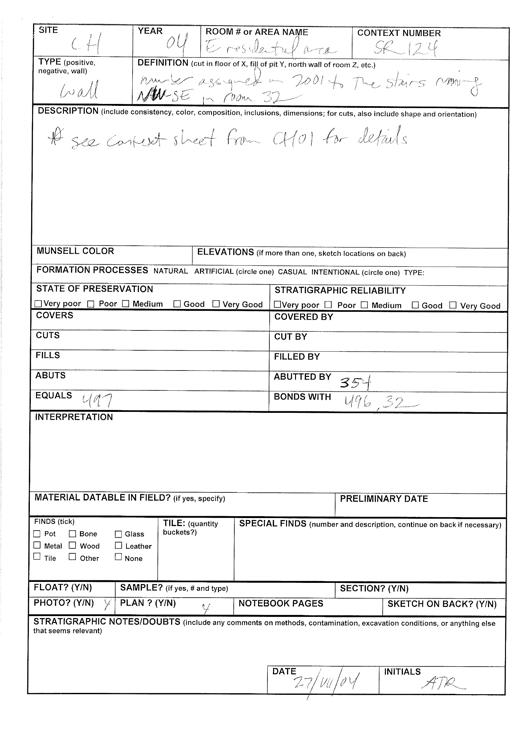 SITE CH
YEAR 04
ROOM # or AREA NAME E residential area
CONTEXT NUMBER SR 124
TYPE (positive, negative, wall) Wall
DEFINITION (cut in floor of X, fill of pit Y, north wall of room Z, etc.)
number assigned in 2001 to the stairs running
NW-SE in room 32
DESCRIPTION (include consistency, color, composition, inclusions, dimensions; for cuts, also include shape and orientation)
* see context sheet from CH01 for details
MUNSELL COLOR
ELEVATIONS (if more than one, sketch locations on back)
FORMATION PROCESSES NATURAL ARTIFICIAL (circle one) CASUAL INTENTIONAL (circle one) TYPE:
STATE OF PRESERVATION
STRATIGRAPHIC RELIABILITY
☐ Very poor ☐ Poor ☐ Medium ☐ Good ☐ Very Good
☐ Very poor ☐ Poor ☐ Medium ☐ Good ☐ Very Good
COVERS
COVERED BY
CUTS
CUT BY
FILLS
FILLED BY
ABUTS
ABUTTED BY 354
EQUALS 497
BONDS WITH 496, 32
INTERPRETATION
MATERIAL DATABLE IN FIELD? (if yes, specify)
PRELIMINARY DATE
FINDS (tick)
☐ Pot ☐ Bone ☐ Glass
☐ Metal ☐ Wood ☐ Leather
☐ Tile ☐ Other ☐ None
TILE: (quantity buckets?)
SPECIAL FINDS (number and description, continue on back if necessary)
FLOAT? (Y/N)
SAMPLE? (if yes, # and type)
SECTION? (Y/N)
PHOTO? (Y/N) Y
PLAN ? (Y/N) Y
NOTEBOOK PAGES
SKETCH ON BACK? (Y/N)
STRATIGRAPHIC NOTES/DOUBTS (include any comments on methods, contamination, excavation conditions, or anything else
that seems relevant)
DATE 27/VII/04
INITIALS ATR